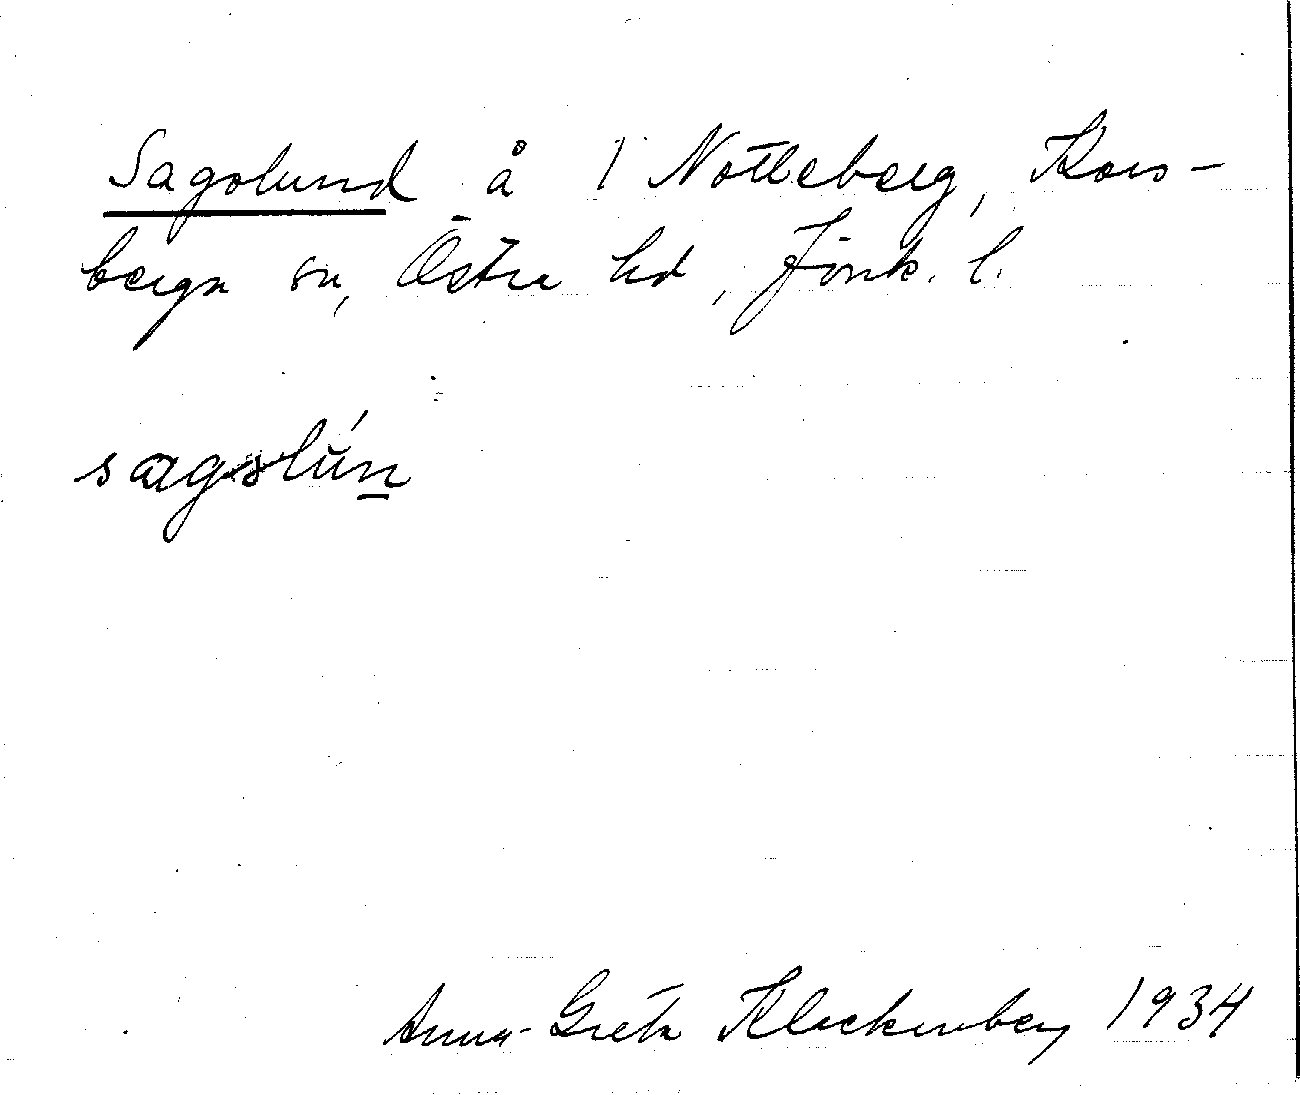 Sagslund å 1 Notteberg, Kors-
berga sn, Östra hd, Jönk. l.
sagslún
Anna-Greta Klockenberg 1934